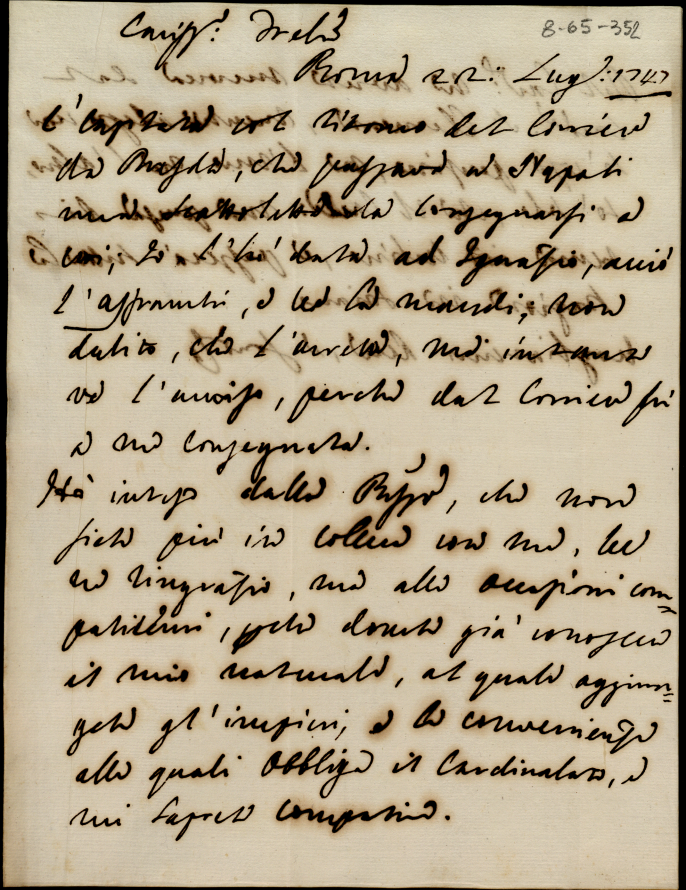 8-65-352
Cariss.º Frello
Roma 22: Lug.º 1747
È Capitata col ritorno del Corriero
da Napoli
una da consegnarsi a
voi, Io l'hò data ad Ignazio, acciò
l'affranchi, e ve la mandi; non
dubito, che l'avrete, mà intanto
ve l'avviso, perche dal Corriero fù
a me consegnata.
Hò inteso dalla, che non
siete più in collera con me, ve
ne ringrazio, ma alle occasioni com=
patitemi, perche dovete già conoscere
il mio naturale, al quale aggiun=
gete gl'impieci, e le convenienze
alle quali obbliga il Cardinalato, e
mi saprete compatire.